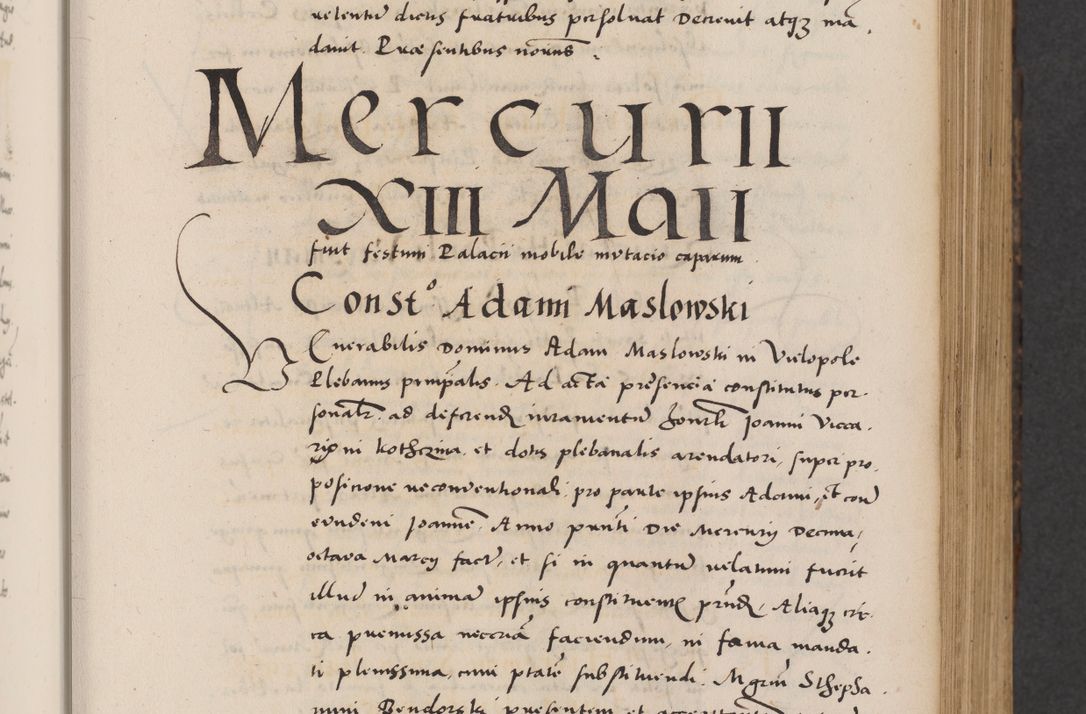 uelentur dictis fratribus persoluat Decreuit atqʒ man
dauit. Præsentibus nobis.
Mercurii
XIII Maii
fuit festum Palacii mobile mutacio caparum
Const° Adami Maslowski
Venerabilis Dominus Adam Maslowski in Vielopole
Plebanus principalis. Ad acta presencia constitutus per.
sonalr. ad deferend iuramentu honorli Ioanni Vicca.
rio in kothczina. et dotis plebanalis arendatori, super pro.
posicione reconuentionali. pro parte ipsius Adami, et con
eundem Ioanne. Anno pnti Die Mercurij Decima,
octaua Marcij factu, et si in quantu uelatum fuerit
illud in anima ipsius constituentis prnd, Aliaqʒ cir.
ca premissa necria faciendum, in forma manda.
ti plenissima, cum ptate substituendi. Mgrm Sthepha.
num Bendorski presentem et acceptantem